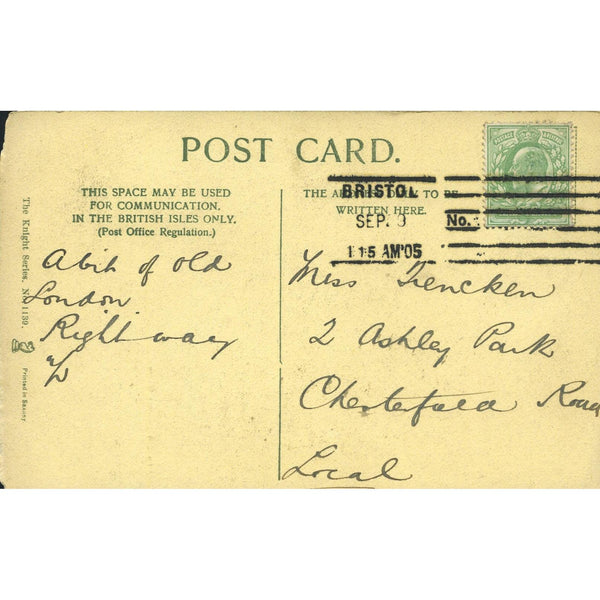 POST CARD.
THIS SPACE MAY BE USED
FOR COMMUNICATION.
IN THE BRITISH ISLES ONLY.
(Post Office Regulation.)
A bit of old
London
Right way
The Knight Series, No 1139.
Printed in Saxony
THE TO BE
WRITTEN HERE.
BRISTOL
SEP. 9
1 15 AM'05
No.
Miss Trencken
2 Ashley Park
Chesterfield Road
Local